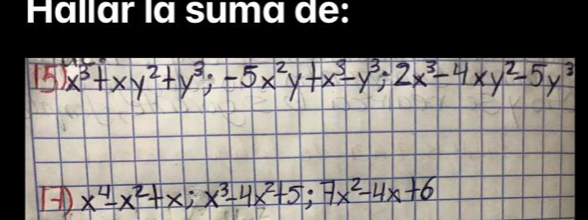 Hallar la suma de:
15) x³+xy²+y³; -5x²y+x³-y³; 2x³-4xy²-5y³
17) x⁴-x²+x; x³-4x²+5; 7x²-4x+6